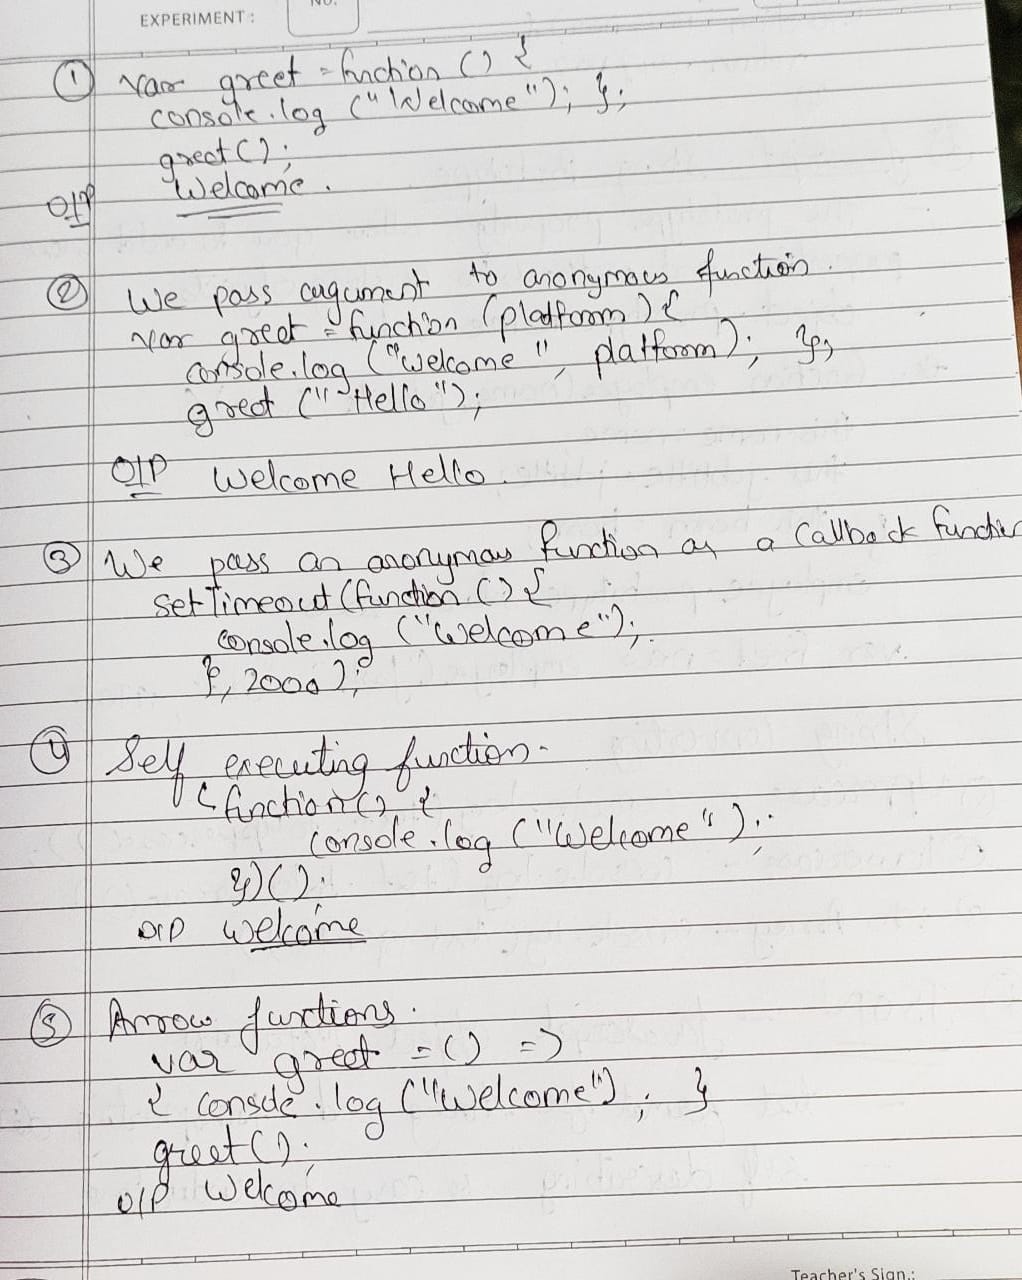 NO.
EXPERIMENT:
① var greet = function () {
console.log ("Welcome"); };
greet();
O/P Welcome.
② We pass argument to anonymous function.
var greet = function (platform) {
console.log ("Welcome", platform); };
greet ("Hello");
O/P Welcome Hello.
③ We pass an anonymous function as a Callback function
setTimeout (function () {
console.log ("Welcome");
}, 2000);
④ Self executing function.
(function() {
console.log ("Welcome");
})();
O/P Welcome
⑤ Arrow functions.
var greet = () =>
{ console.log ("Welcome"); }
greet();
O/P Welcome
Teacher's Sign.: